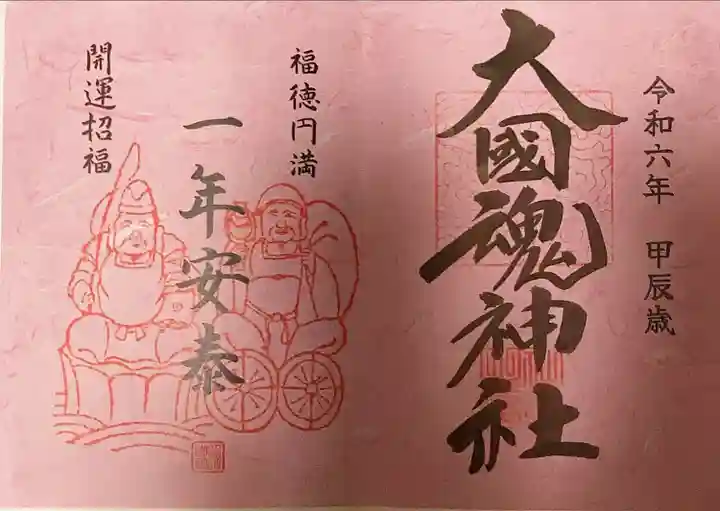 令和六年 甲辰歳
大國魂神社
福徳円満
一年安泰
開運招福